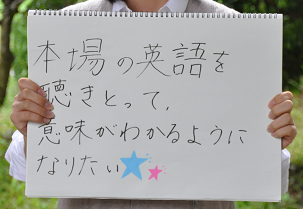 本場の英語を
聴きとって、
意味がわかるように
なりたい